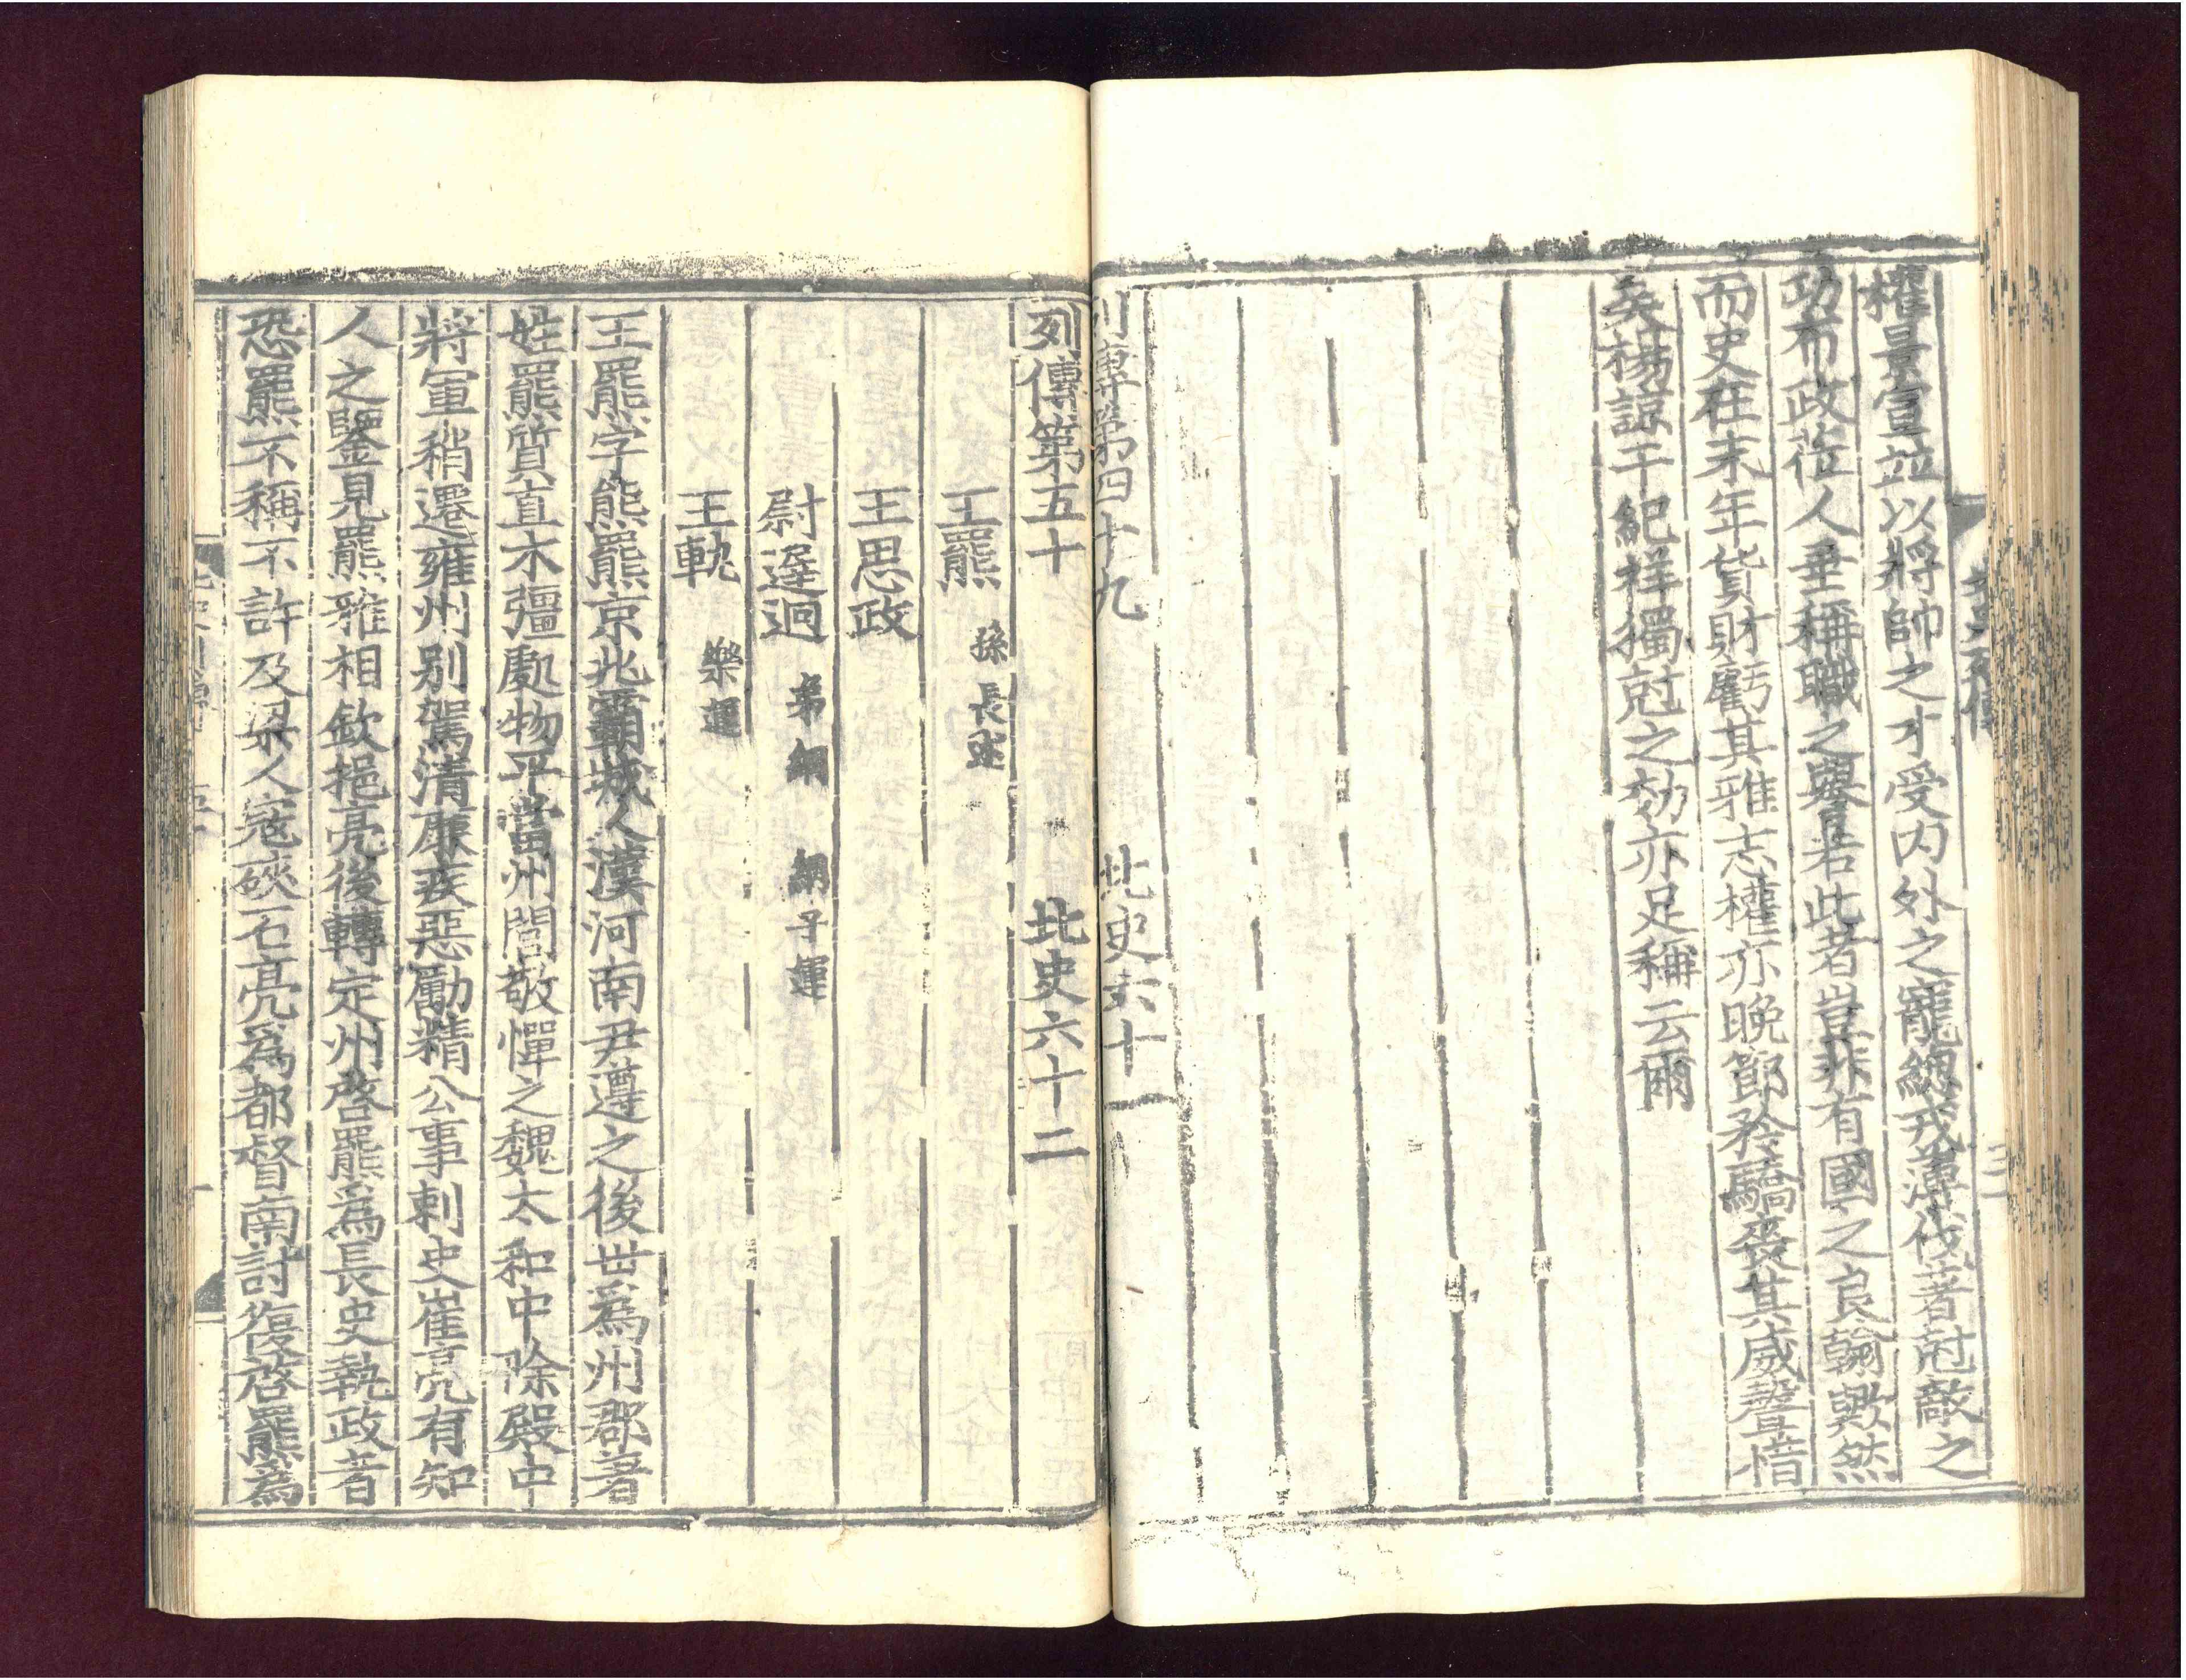 權景宣並以將帥之才受内外之寵總戎薄伐著尅敵之
功布政莅人垂稱職之譽若此者豈非有國之良翰歟然
而史在末年貨財虧其雅志權亦晚節矜驕喪其威聲惜
矣楊諒干紀祥獨尅之効亦足稱云爾
列傳第四十九 北史六十一
列傳第五十 北史六十二
王羆 孫長述
王思政
尉遲迥 弟綱 綱子運
王軌 樂運
王羆字熊羆京兆霸城人漢河南尹遵之後世爲州郡著
姓羆質直木彊處物平當州閭敬憚之魏太和中除殿中
將軍稍遷雍州别駕清廉疾惡勵精公事刺史崔亮有知
人之鑒見羆雅相欽挹亮後轉定州啓羆爲長史執政者
恐羆不稱不許及梁人寇硤石亮爲都督南討復啓羆爲